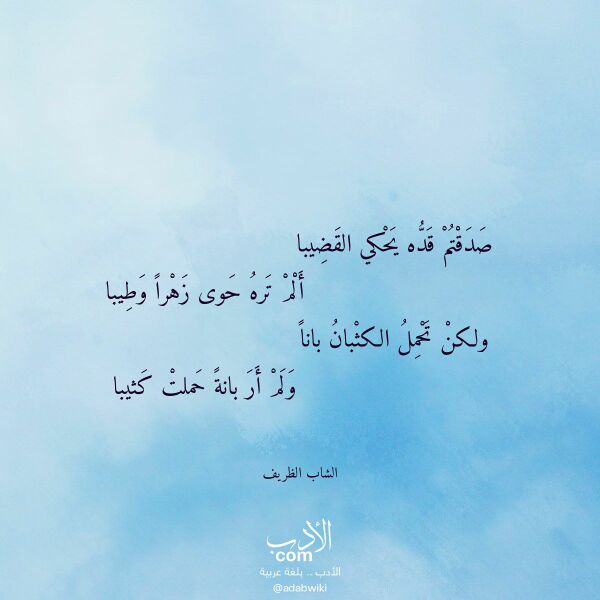 صَدَقْتُمْ قَدُّه يَحْكي القَضِيبا
أَلَمْ تَرهُ حَوى زَهْراً وَطِيبا
ولكنْ تَحْمِلُ الكثْبانُ باناً
وَلَمْ أَرَ بانةً حَملتْ كَثيبا
الشاب الظريف
الأدب
com
الأدب .. بلغة عربية
@adabwiki